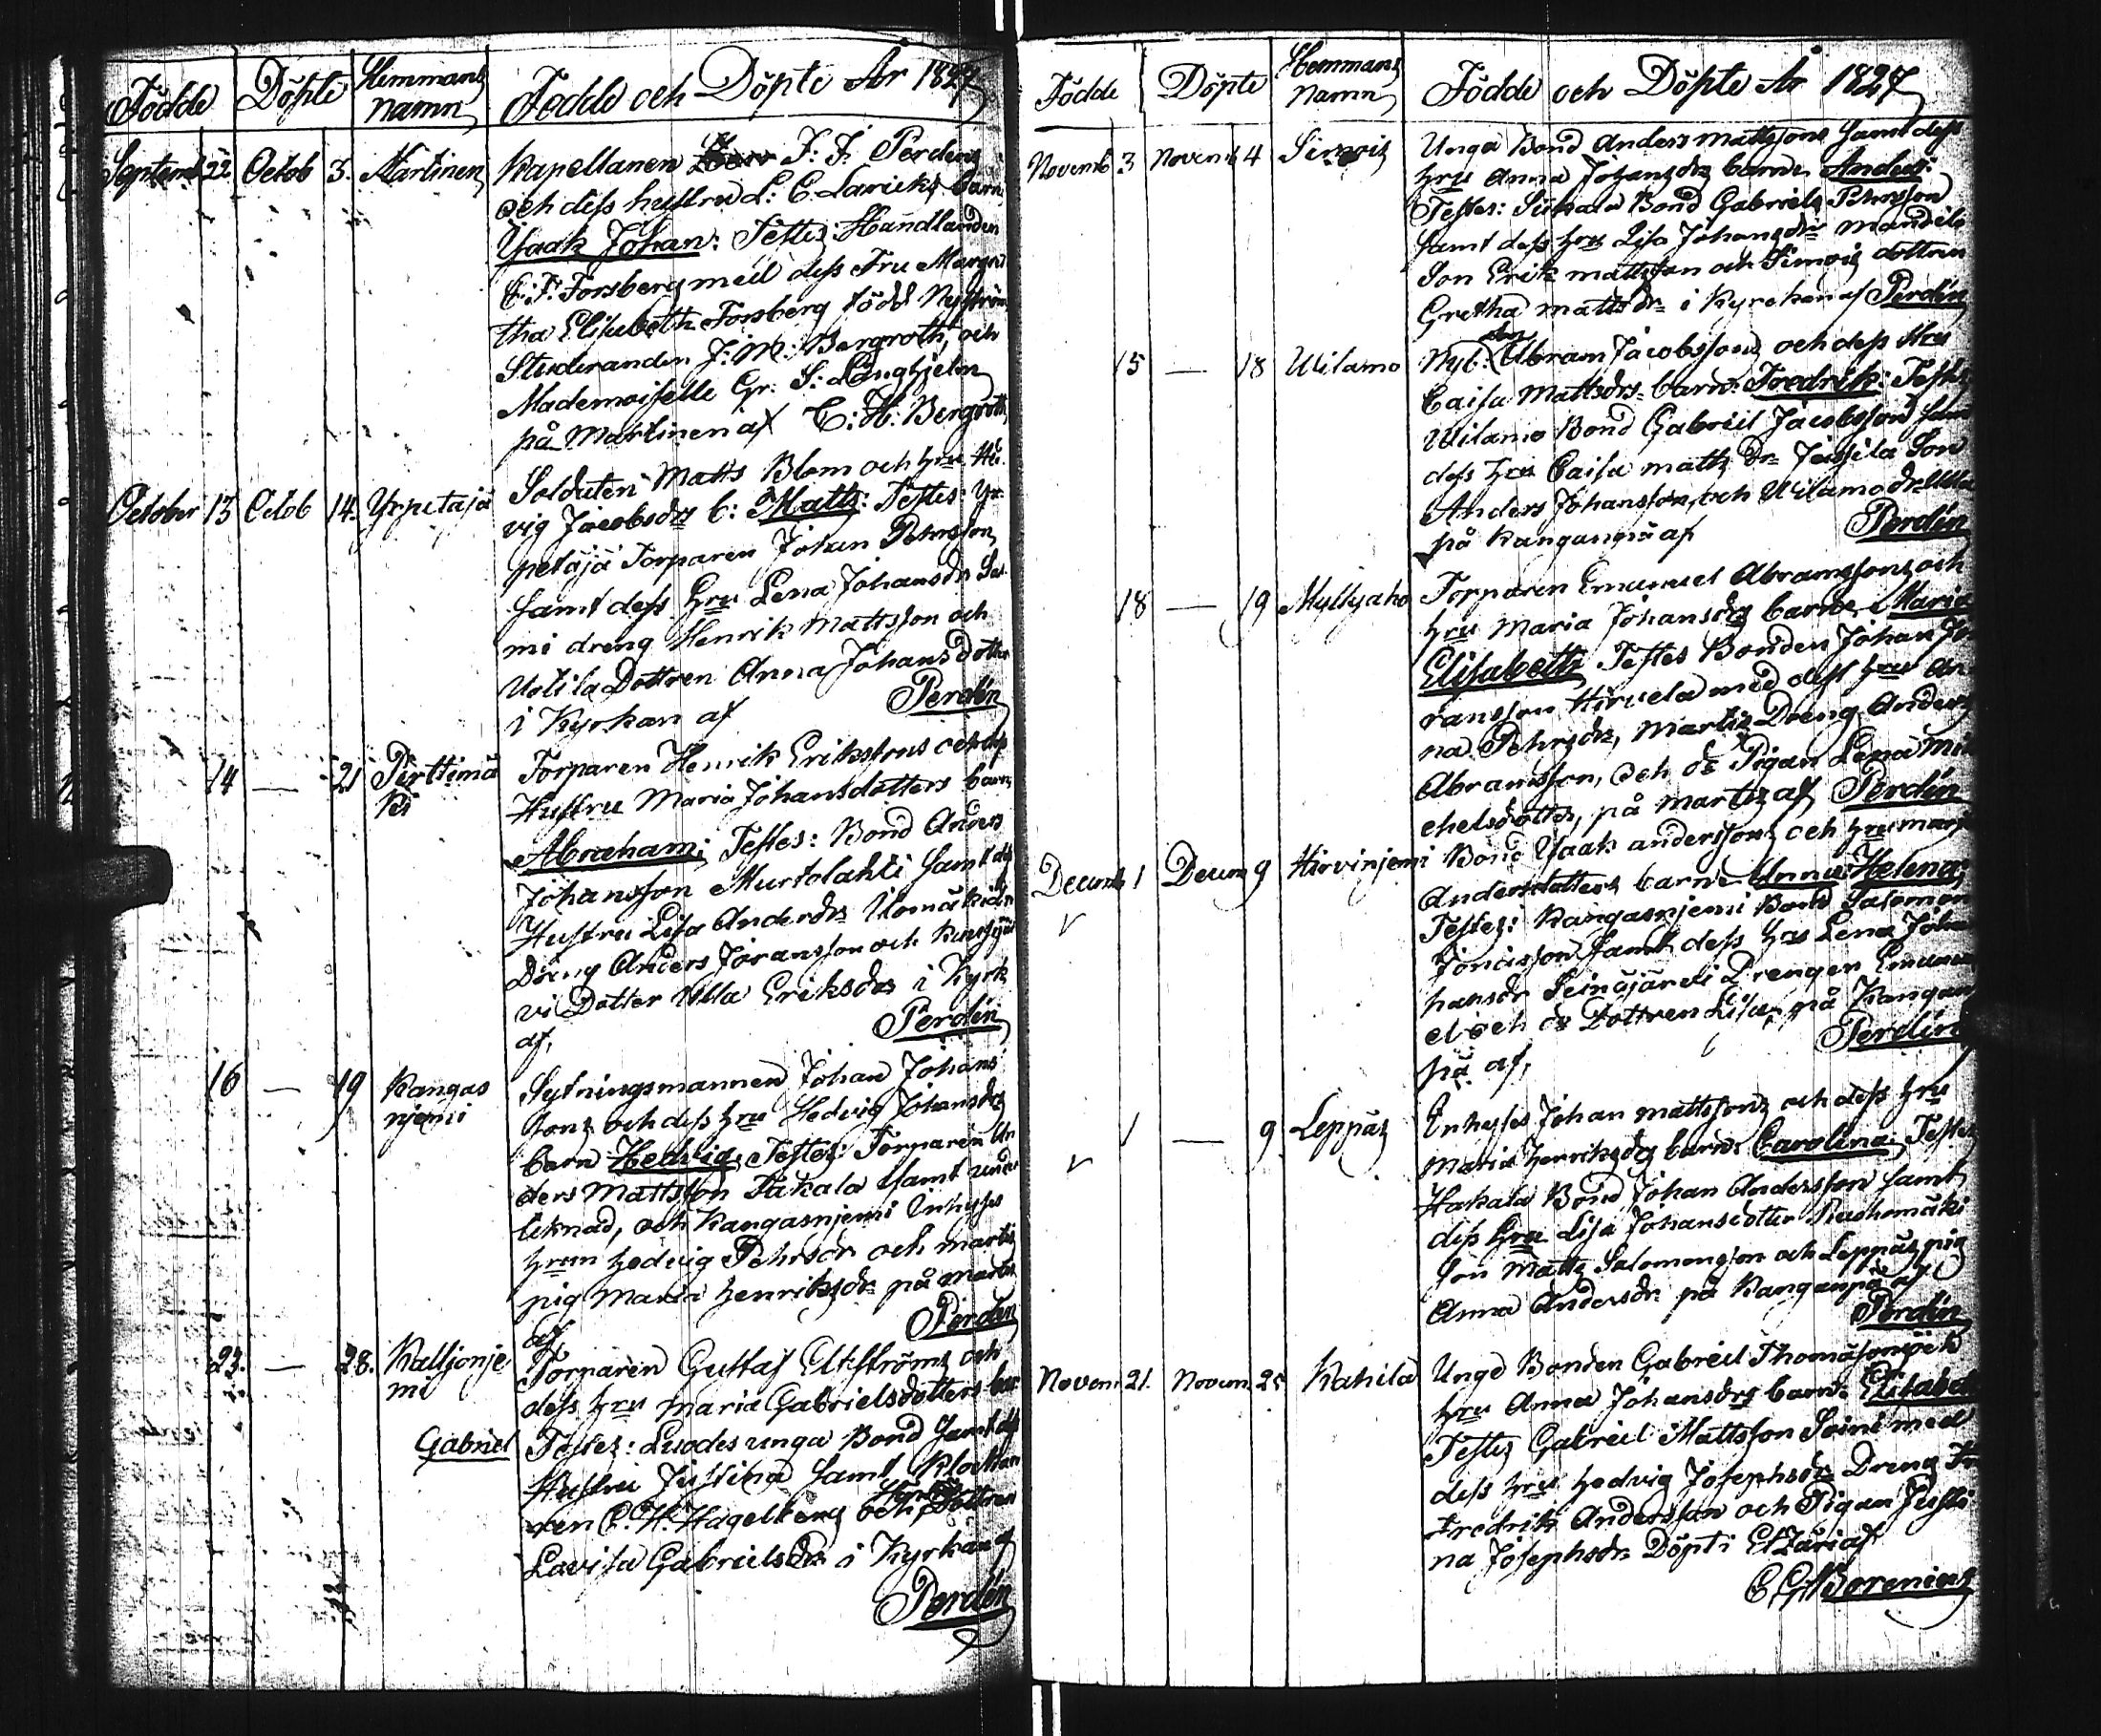 Födde Döpte Hemmans namn Födde och Döpte År 1827
Septemb 22. Octob 3. Martinen Kapellanen J: F. Perdens
och dess hustru L: C. Laricks barn
Isaak Johan: Testes: Handlanden
C. F. Forsberg med dess Fru Marga
tha Elisabeth Forsberg född Nyström
Studeranden J: M: Bergroth, och
Mademoiselle Gr: S: Langhjelm
på Martinen af C: H: Bergroth
October 13 Octob 14. Yrpetäjä Soldaten Matts Blom och hru He
vig Jacobsdrs b: Matts: Testes: Yr
petäjä Torparen Johan Pehrsson
samt dess hru Lena Johansdr Sal
mi dreng Henrik Mattsson och
Uotila Dottren Anna Johansdotter
i Kyrkan af Perdén
14 — 21 Perttimä
ki
Torparen Henrik Erikssons och dess
Hustru Maria Johansdotters barn
Abraham: Testes: Bond Anders
Johansson Murtolahti samt dess
Hustru Lisa Andersdr
Dreng Anders Joransson och
vi Dotter Ulla Eriksdr i Kyrk
af, Perdén
16 — 19 Kangas
njemi
Sytningsmannen Johan Johans
sons och dess hru Hedvig Johansdrs
barn Hedvig, Testes: Torparen An
ders Mattsson Takala samt under
teknad, och Kangasnjemi Inhyses
hrun Hedvig Pehrsdr och Martis
pig Maria Henriksdr på Martis
af Perdén
23. — 28. Kalljonje
mi
Torparen Gustaf Elfströms och
dess hru Maria Gabrielsdotters bar
Gabriel Testes: Luodes unga Bond samt dess
Hustru Justina samt Klockan
ren C. H. Hagelberg och Dottren
Lovisa Gabrielsdr i Kyrkan af
Perdén
Födde Döpte Hemmans Namn Födde och Döpte År 1827
Novemb 3 Novemb 4 Simois Unga Bond Anders Mattssons samt dess
hrus Anna Johansdrs barn: Anders:
Testes: Bond Gabriels Pehrsson
samt dess hru Lisa Johansdr Mandila
Son Erik Mattsson och Simois dottren
Gretha Mattsdr i Kyrckan af Perdén
15 — 18 Uilamo Nyb: Abram Jacobssons och dess Hru
Caisa Mattsdrs barn: Fredrik: Testes
Uilamo Bond Gabriel Jacobsson sam
dess hru Caisa Matts dr Jussila Son
Anders Johansson, och Uilamo dr Ulla
på Kanganpä af Perdén
18 — 19 Myllyaho Torparen Emanuel Abramssons och
hru Maria Johansdrs barn: Maria
Elisabeth Testes Bonden Johan Jo
ransson Hirvela med dess hru An
na Pehrsdr, Martis Dreng Anders
Abramsson, och ds Pigan Lena Mi
chelsdotter, på Martis af Perdén
Decemb 1 Decem 9 Hirvinjemi Bond Isaak Anderssons och hru Marg
Andersdotters barn: Anna Helena,
Testes: Kangasnjemi Bond Salomon
samt dess hru Lena Joha
hansdr Seinäjärvi Drengen Emanu
el och ds Dottren Lisa, på Kangan
pä af, Perdén
1 — 9 Leppäs Inhyses Johan Mattssons och dess hru
Maria Henriksdrs barn: Carolina: Testes
Hakala Bond Johan Andersson samt
dess hru Lisa Johansdotter
Son Matts Salomonsson och Leppäs pig
Anna Andersdr på Kanganpä af
Perdén
Novem 21. Novem 25 Kahila Unge Bonden Gabriel Thomassons och
hru Anna Johansdrs barn: Elisabet
Testes Gabriel Mattsson Soini med
dess hru Hedvig Josephsdr Dreng
Fredrik Andersson och Pigan Justi
na Josephsdr Döpt i Etzäri af
C G Borenius